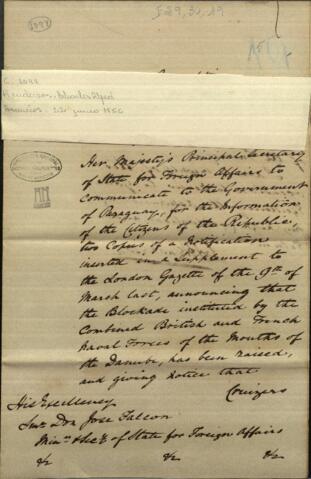 3098
I-29, 30, 19
C. 3098
Henderson, Charles
Asunción - 22 junio 1856
Her Majesty's Principal Secretary
of State for Foreign Affairs to
communicate to the Government
of Paraguay, for the Information
of the Citizens of the Republic,
two Copies of a Notification
inserted in a Supplement to
the London Gazette of the 9th of
March last, announcing that
the Blockade instituted by the
Combined British and French
Naval Forces of the Mouths of
the Danube, has been raised,
and giving notice that
Cruizers
His Excellency
Senr. Don Jose Falcon
Minr. & Secy. of State for Foreign Affairs
&/2 &/2 &/2